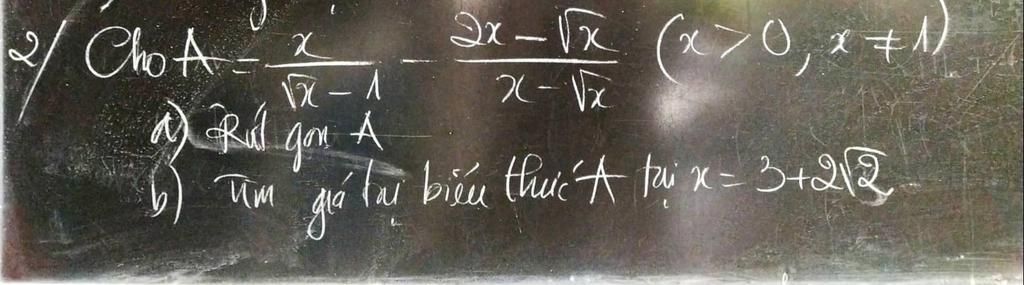 2/ Cho A = \frac{x}{\sqrt{x} - 1} - \frac{2x - \sqrt{x}}{x - \sqrt{x}} (x > 0, x ≠ 1)
a) Rút gọn A
b) Tìm giá trị biểu thức A tại x = 3+2√2